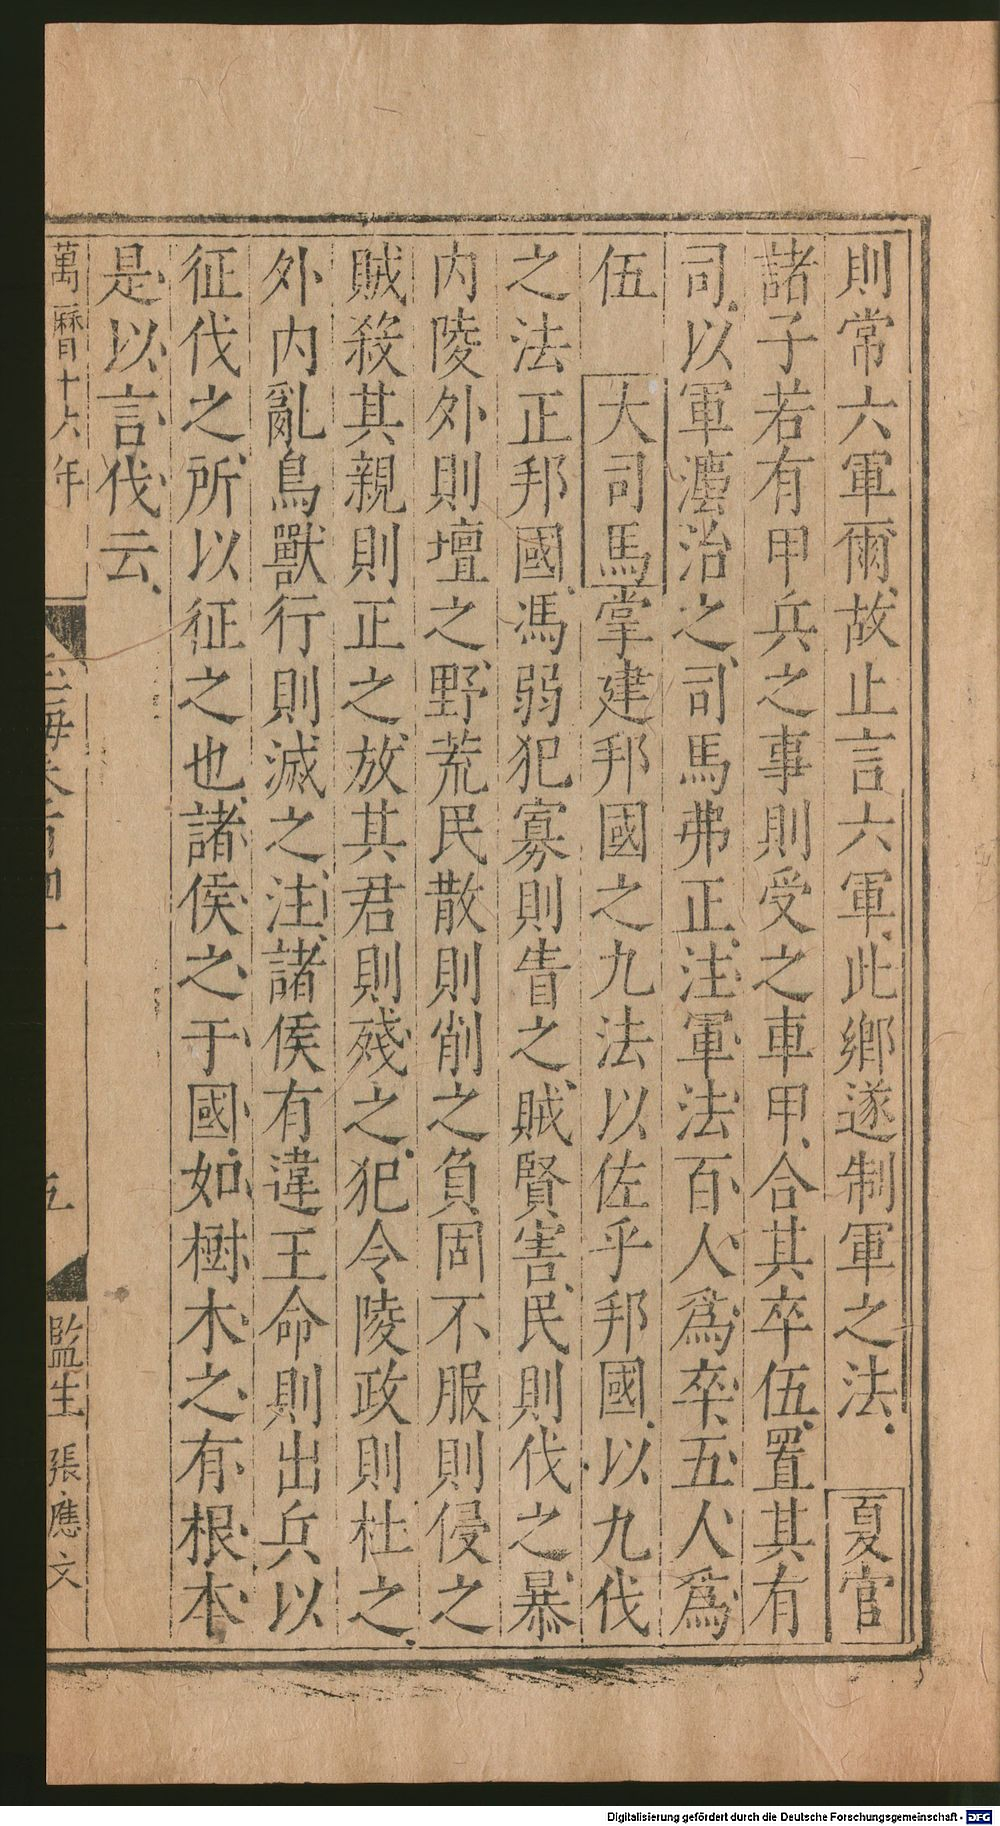 則常六軍爾故止言六軍此鄉遂制軍之法　夏官
諸子若有甲兵之事則受之車甲合其卒伍置其有
司以軍灋治之司馬弗正注軍法百人爲卒五人爲
伍　大司馬掌建邦國之九法以佐乎邦國以九伐
之法正邦國馮弱犯寡則眚之賊賢害民則伐之暴
内陵外則壇之野荒民散則削之負固不服則侵之
賊殺其親則正之放其君則殘之犯令陵政則杜之
外内亂鳥獸行則滅之注諸侯有違王命則出兵以
征伐之所以征之也諸侯之于國如樹木之有根本
是以言伐云
萬曆十六年
玉海卷百四一
五
監生　張應文
Digitalisierung gefördert durch die Deutsche Forschungsgemeinschaft - DFG